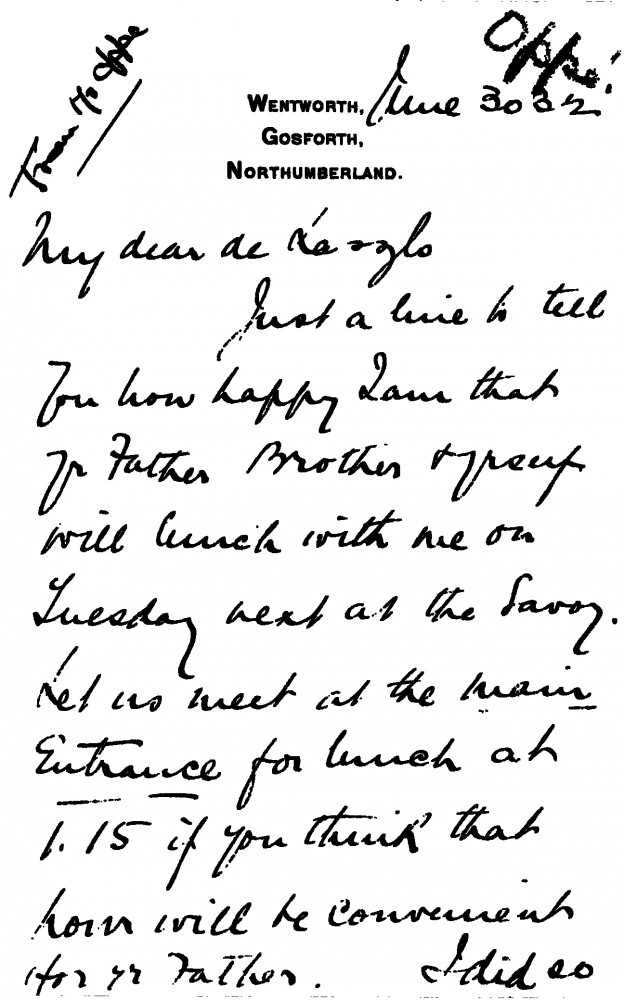 Oppé!
From T/s Oppé
WENTWORTH, June 30 32
GOSFORTH,
NORTHUMBERLAND.
My dear de Laszlo
Just a line to tell
you how happy I am that
yr Father Brother & yrself
will lunch with me on
Tuesday next at the Savoy.
Let us meet at the main
Entrance for lunch at
1.15 if you think that
hour will be convenient
for yr Father. I did so